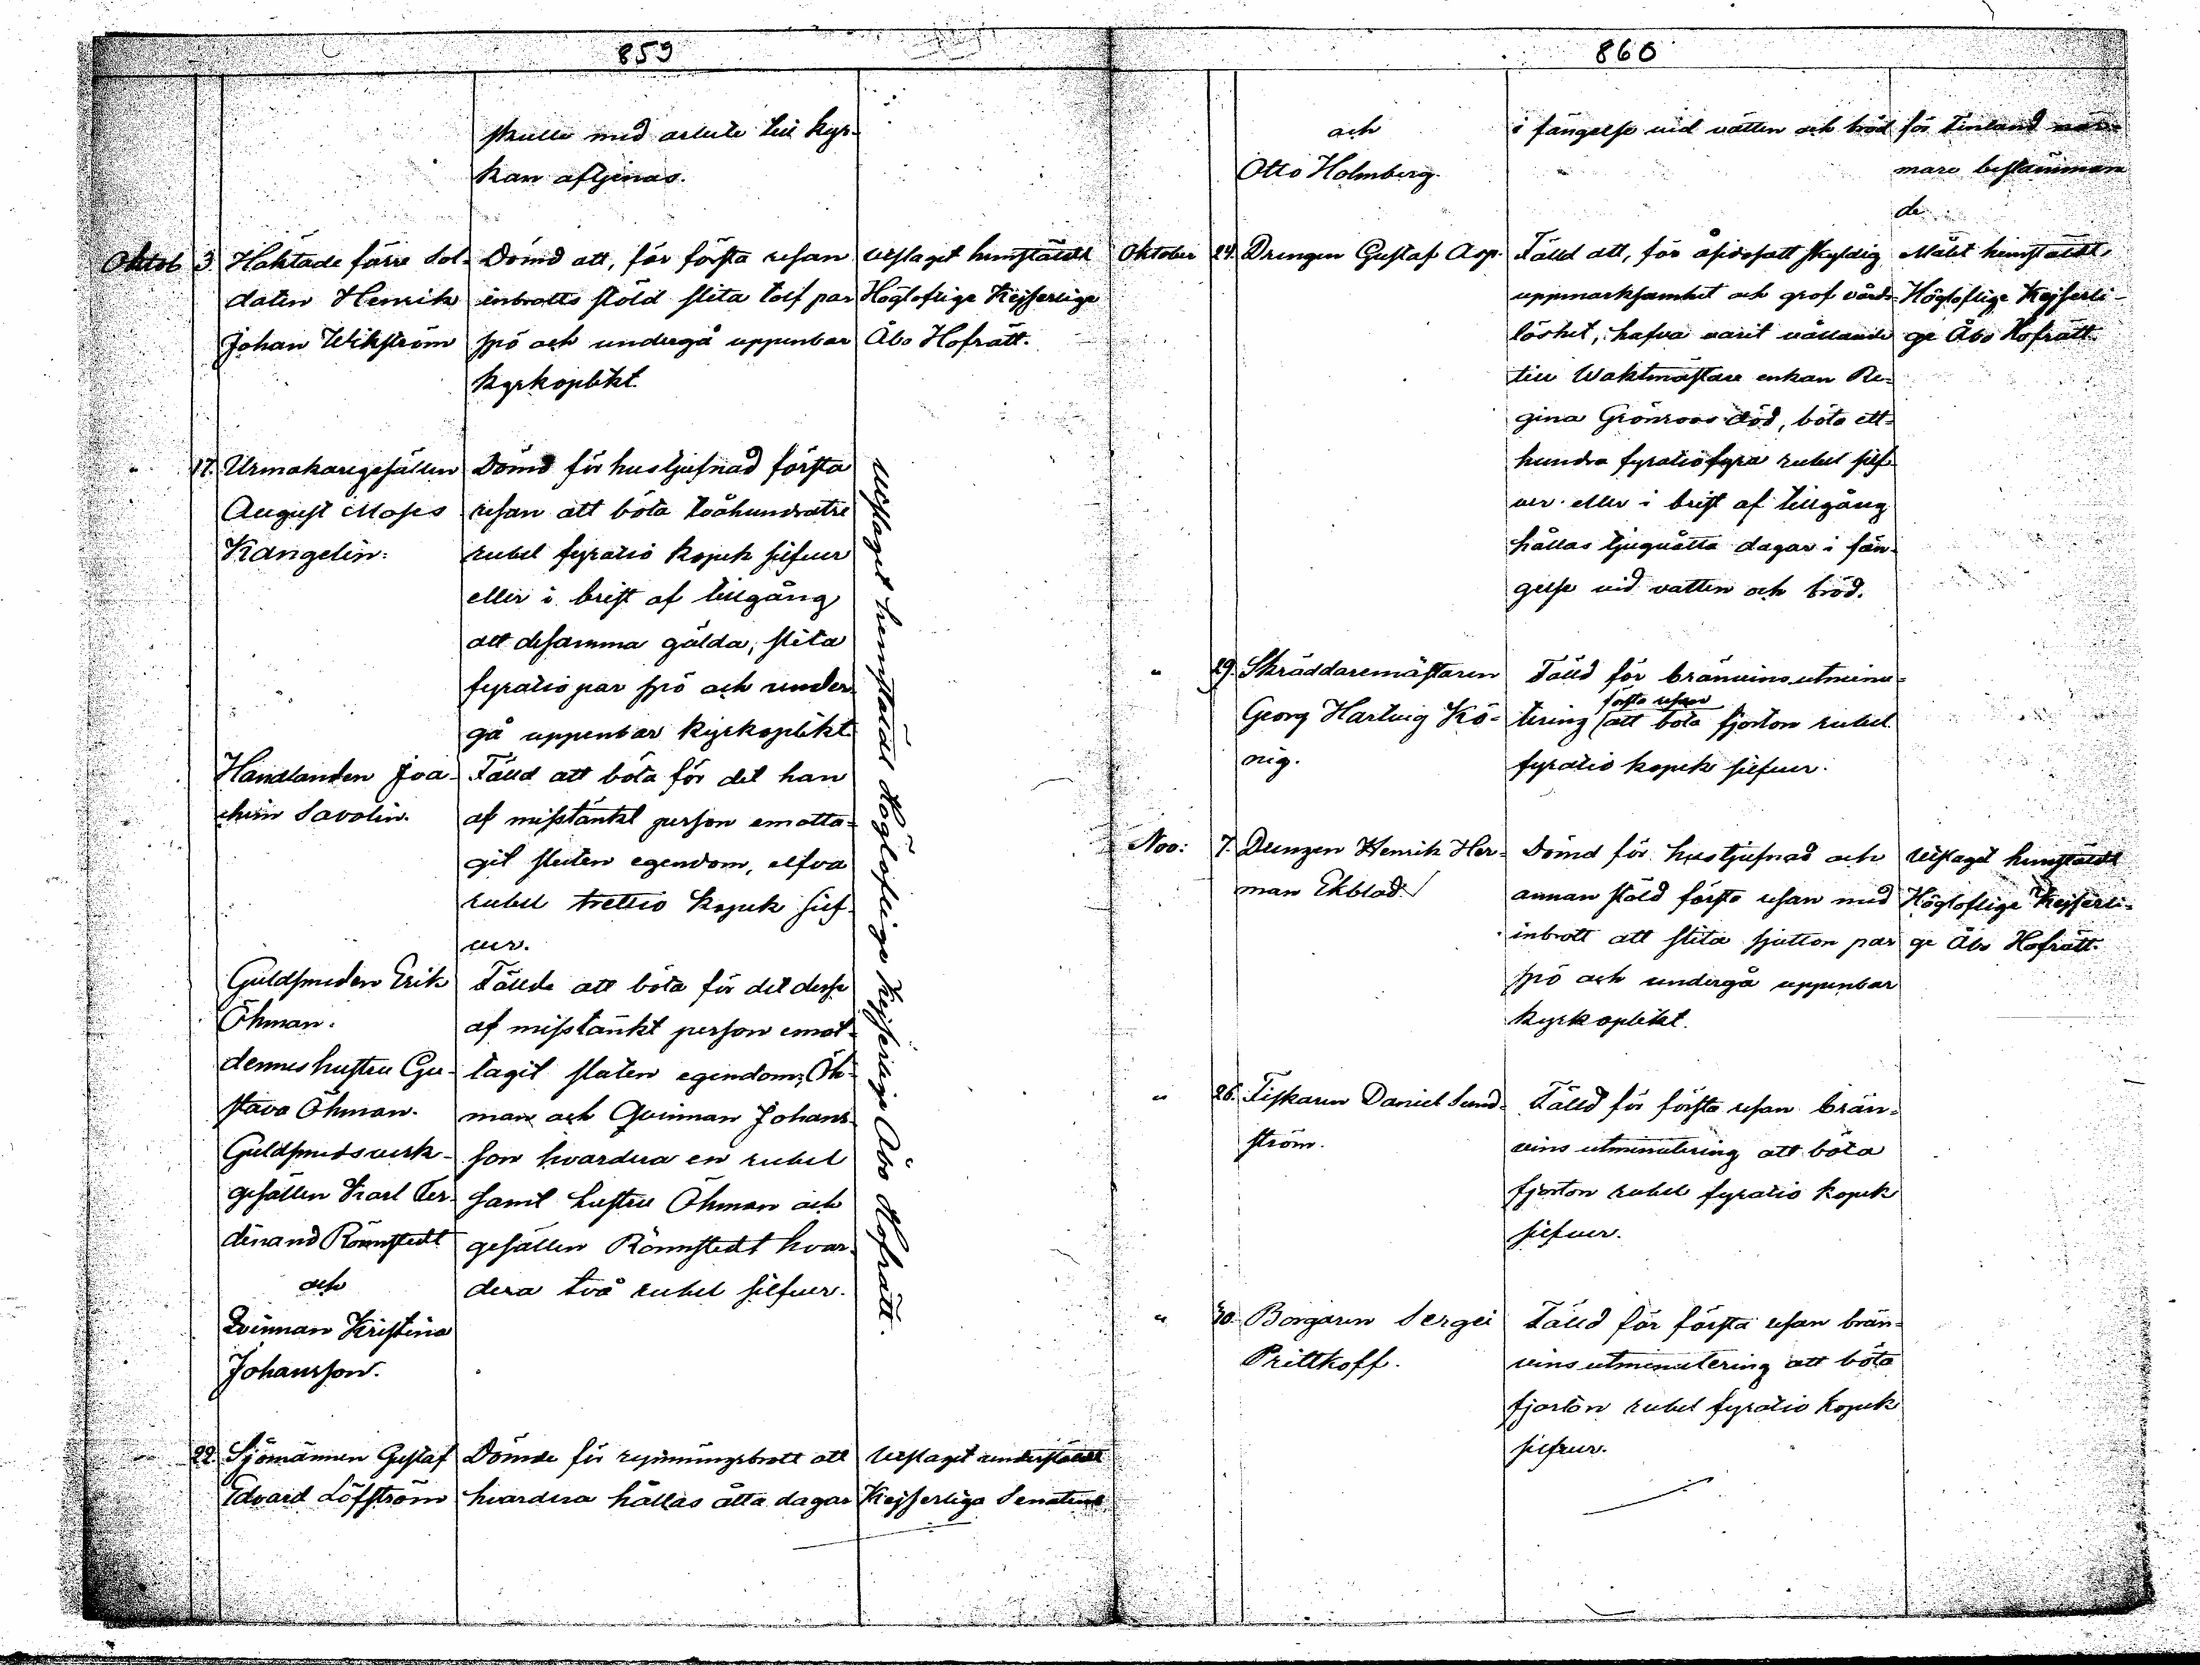 859
skulle med arbete till kyr-
kan aftjenas.
Oktob. 3. Häktade förre Sol-
daten Henrik
Johan Wikström
Dömd att, för första resan
inbrotts stöld slita tolf par
spö och undergå uppenbar
kyrkoplikt.
Utslaget hemstäldt
Högloflige Kejserlige
Åbo Hofrätt.
" 17. Urmakaregesällen
August Moses
Kangelin.
Dömd för hustjufnad första
resan att böta tvåhundratre
rubel fyratio kopek silfver
eller i brist af tillgång
att desamma gälda, slita
fyratio par spö och under
gå uppenbar kyrkoplikt.
Handlanden Joa-
chim Savolin.
Fälld att böta för det han
af misstänkt person emotta-
git stulen egendom, elfva
rubel trettio kopek silf-
ver.
Guldsmeden Erik
Öhman.
dennes hustru Gu-
stava Öhman.
Guldsmedsverk-
gesällen Karl Fer-
dinand Rönnstedt
och
Qvinnan Kristina
Johansson.
Fällde att böta för det desse
af misstänkt person emot-
tagit stulen egendom; Öh-
man och Qvinnan Johans-
son hvardera en rubel
samt hustru Öhman och
gesällen Rönnstedt hvar-
dera två rubel silfver.
Utslaget hemstäldt Högloflige Kejserlige Åbo Hofrätt.
22. Sjömännen Gustaf
Edvard Löfström
Dömde för rymningsbrott att
hvardera hållas åtta dagar
Utslaget understäldt
Kejserliga Senaten
860
och
Otto Holmberg.
i fängelse vid vatten och bröd
för Finland när-
mare bestämman
de.
Oktober 24. Drengen Gustaf Asp.
Fälld att, för åsidosatt skyldig
uppmärksamhet och grof vårds-
löshet, hafva varit vållande
till Waktmästare enkan Re-
gina Grönroos död, böta ett-
hundra fyratiofyra rubel silf-
ver eller i brist af tillgång
hållas tjuguåtta dagar i fän-
gelse vid vatten och bröd.
Målet hemstäldt,
Högloflige Kejserli-
ge Åbo Hofrätt.
" 29. Skräddaremästaren
Georg Hartvig Kö-
nig.
Fälld för bränvins utminu-
första resan
tering att böta fjorton rubel
fyratio kopek silfver.
Nov: 7. Drengen Henrik Her-
man Ekblad.
Dömd för hustjufnad och
annan stöld första resan med
inbrott att slita sjutton par
spö och undergå uppenbar
kyrkoplikt.
Utslaget hemstäldt
Högloflige Kejserli-
ge Åbo Hofrätt.
" 26. Fiskaren Daniel Sund-
ström.
Fälld för första resan brän-
vins utminutering att böta
fjorton rubel fyratio kopek
silfver.
" 30. Borgaren Sergei
Prittkoff.
Fälld för första resan brän-
vins utminutering att böta
fjorton rubel fyratio kopek
silfver.